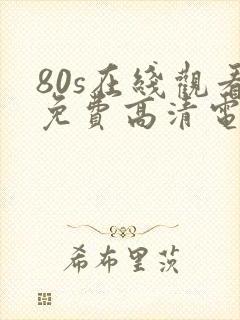 80s在綫觀看
免費高清電
希布里茨